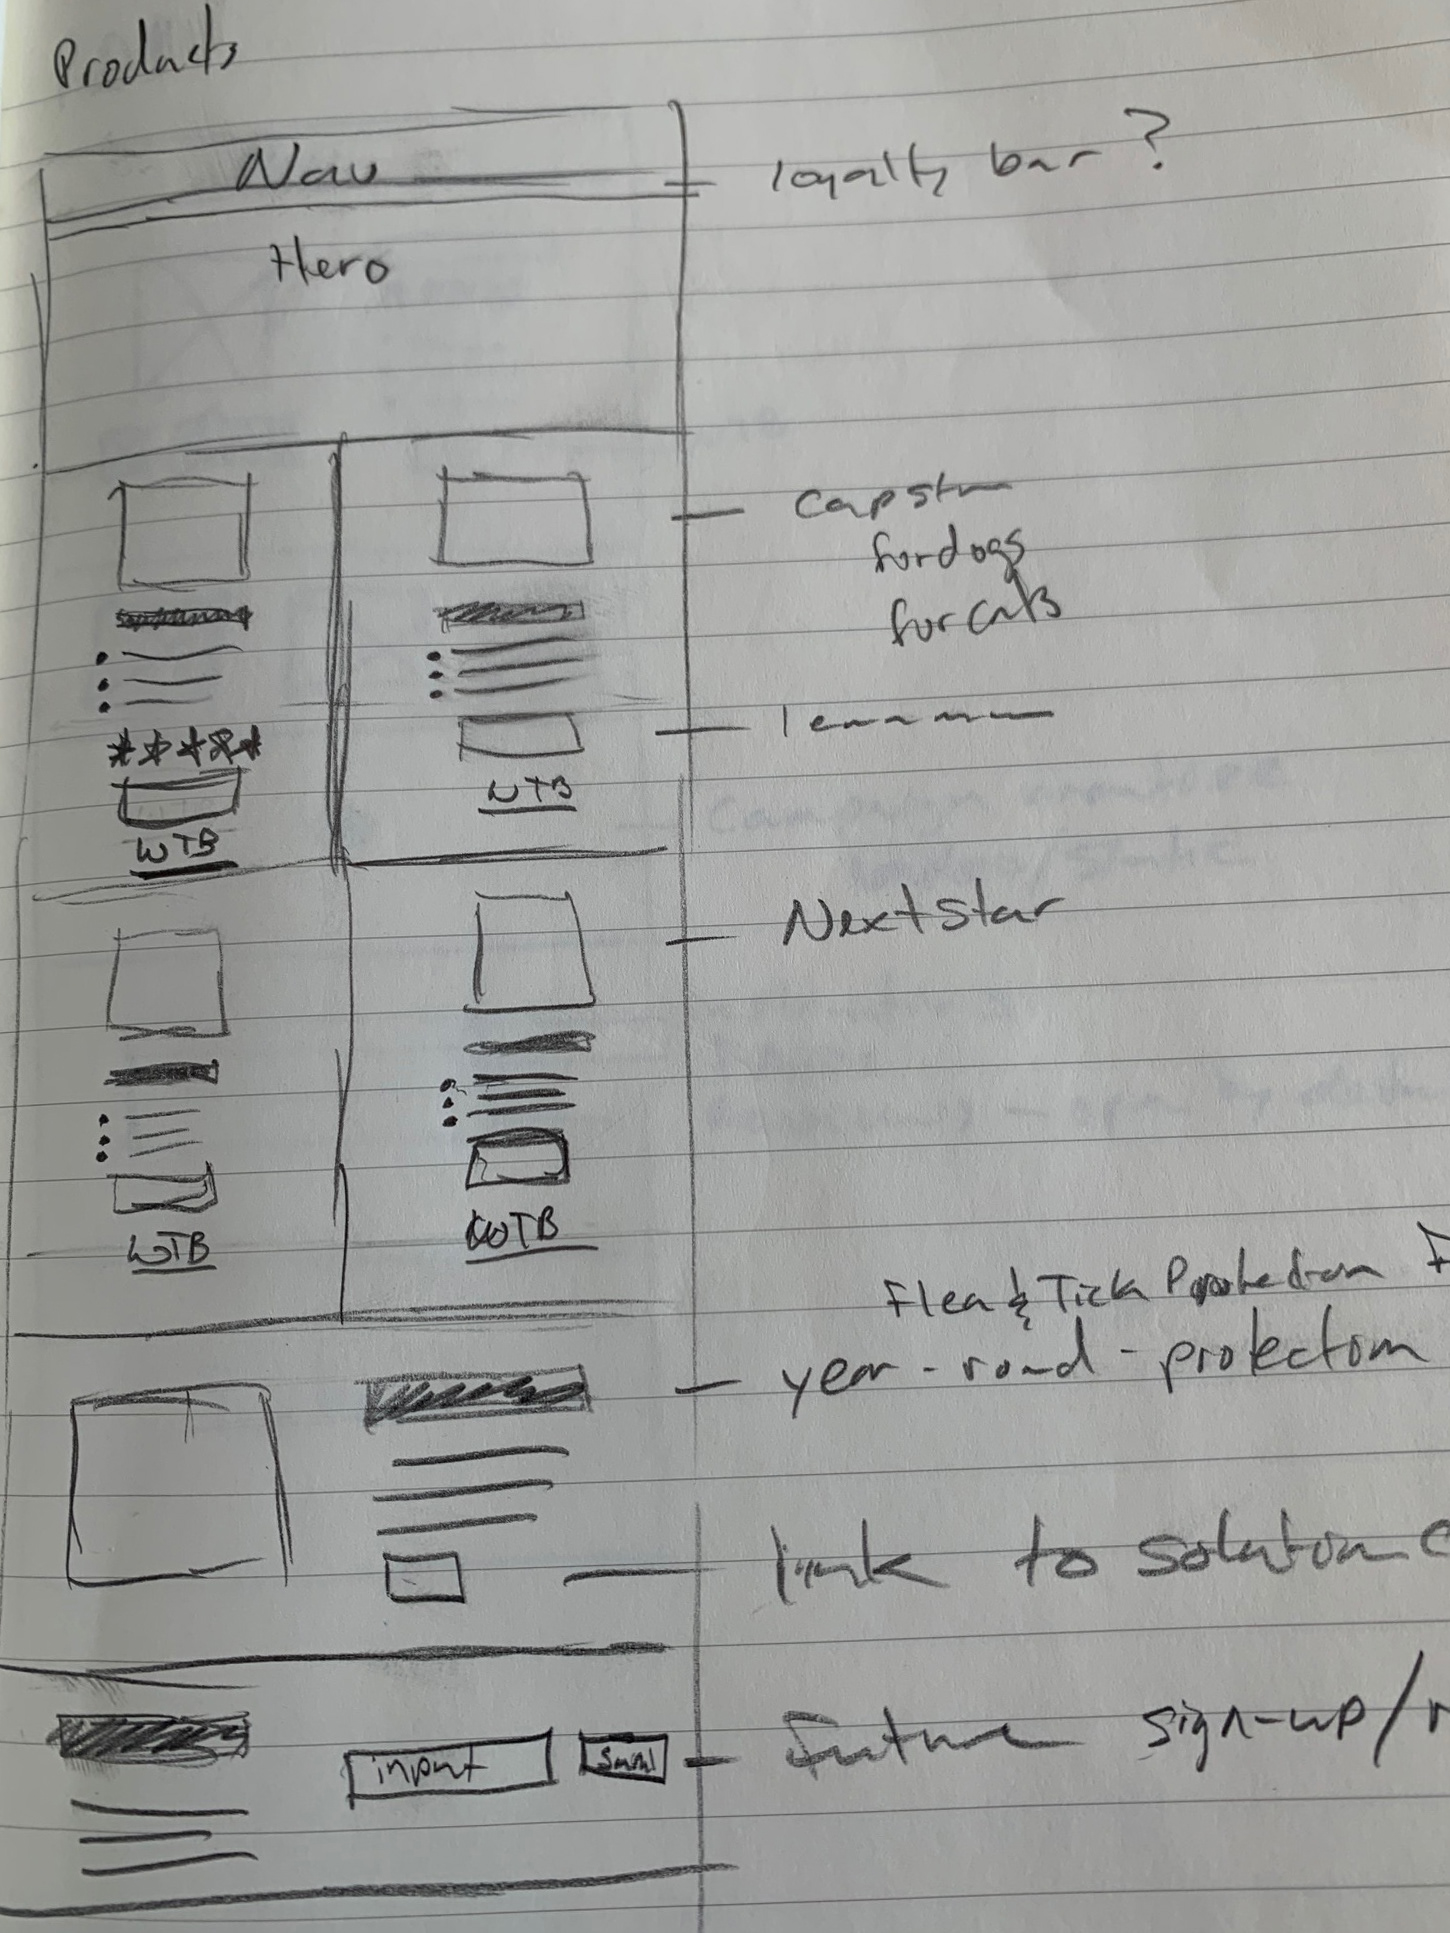 Products
Nav
loyalty bar?
Hero
Capstar
for dogs
for cats
WTB
WTB
Nextstar
WTB
WTB
Flea & Tick Protection
year-round-protection
link to solution
input
Future sign-up/